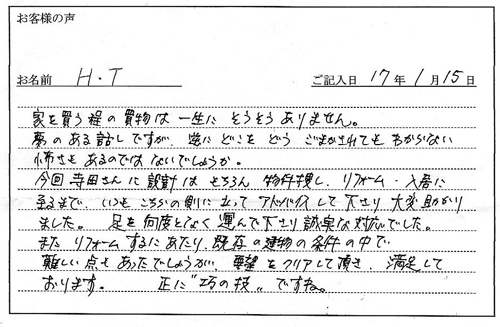 お客様の声
お名前 H・T ご記入日 17年 1月 15日
家を買う程の買物は一生に そうそう ありません。
夢のある話しですが、逆に どこを どう ごまかされても わからない
怖さも あるのでは ないでしょうか。
今回 寺田さんに 設計は もちろん 物件捜し、リフォーム・入居に
至るまで、いつも こちらの側に立って アドバイスして下さり 大変助かり
ました。 足を何度となく 運んで下さり 誠実な対応でした。
また リフォームするにあたり、既存の建物の条件の中で
難しい点も あったでしょうが、要望をクリアして頂き、満足して
おります。 正に "巧の技" ですね。